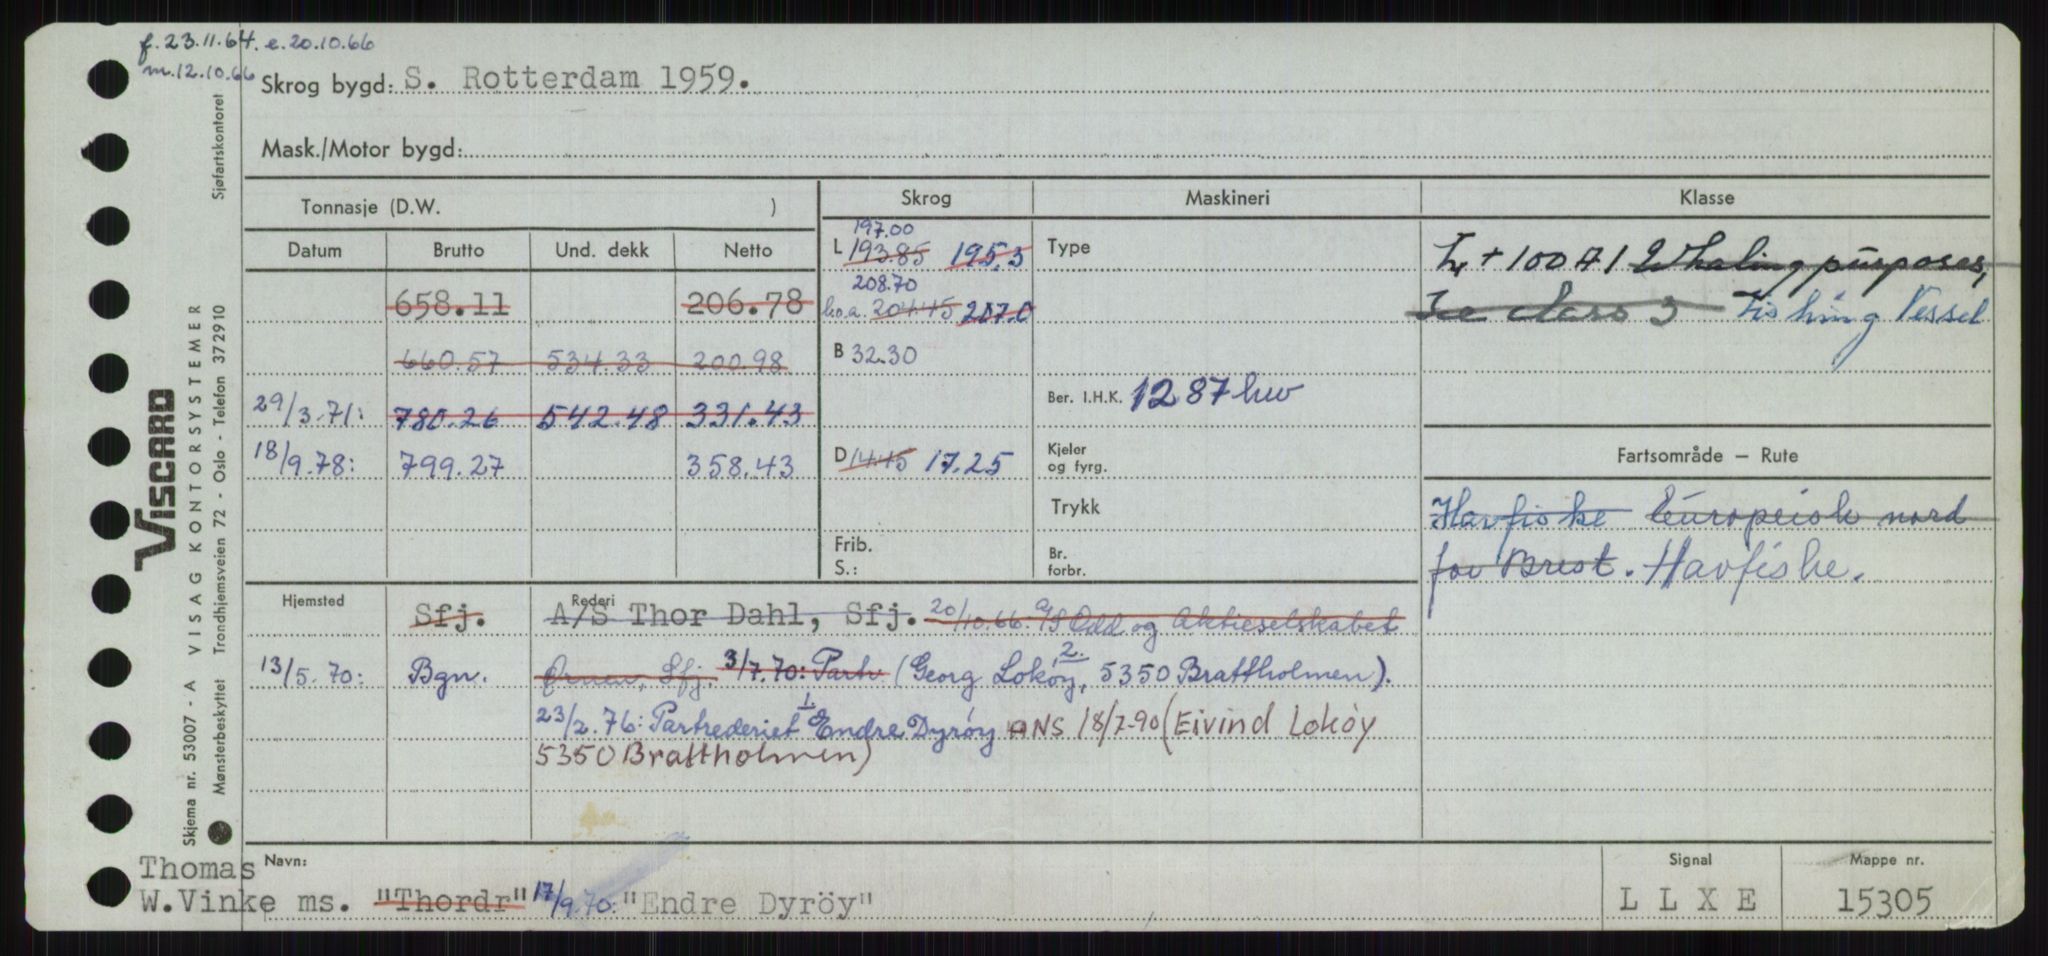 f. 23.11.64. e. 20.10.66
m. 12.10.66
Skrog bygd: S. Rotterdam 1959.
Mask./Motor bygd:
Tonnasje (D.W. )
Skrog
Maskineri
Klasse
Datum Brutto Und. dekk Netto
658.11 206.78
660.57 534.33 200.98
29/3.71: 780.26 542.48 331.43
18/9.78: 799.27 358.43
197.00
L 193.85 195.3
208.70
l.o.a. 204.45 207.0
B 32.30
D 14.45 17.25
Frib.
S.:
Type
Ber. I.H.K. 1287 hw
Kjeler
og fyrg.
Trykk
Br.
forbr.
+ 100 A 1 Whaling purposes,
Ice class 3 Fishing Vessel
Fartsområde — Rute
Havfiske Europeisk nord
for Brest. Havfiske.
Hjemsted Rederi
Sfj. A/S Thor Dahl, Sfj. 20/10.66. A/S Odd og Aktieselskabet
13/5.70: Bgn. Ørnen, Sfj. 3/7.70: Partr. (Georg Loköy, 2. 5350 Brattholmen).
23/2.76: Partrederiet 1. Endre Dyröy ANS 18/7-90 (Eivind Loköy
5350 Brattholmen)
Thomas Navn:
W.Vinke ms. "Thordr" 17/9.70: "Endre Dyröy"
Signal
L L X E
Mappe nr.
15305
Skjema nr. 53007 - A VISAG KONTORSYSTEMER
Mønsterbeskyttet Trondhjemsveien 72 - Oslo - Telefon 372910 Sjøfartskontoret
VISCARD